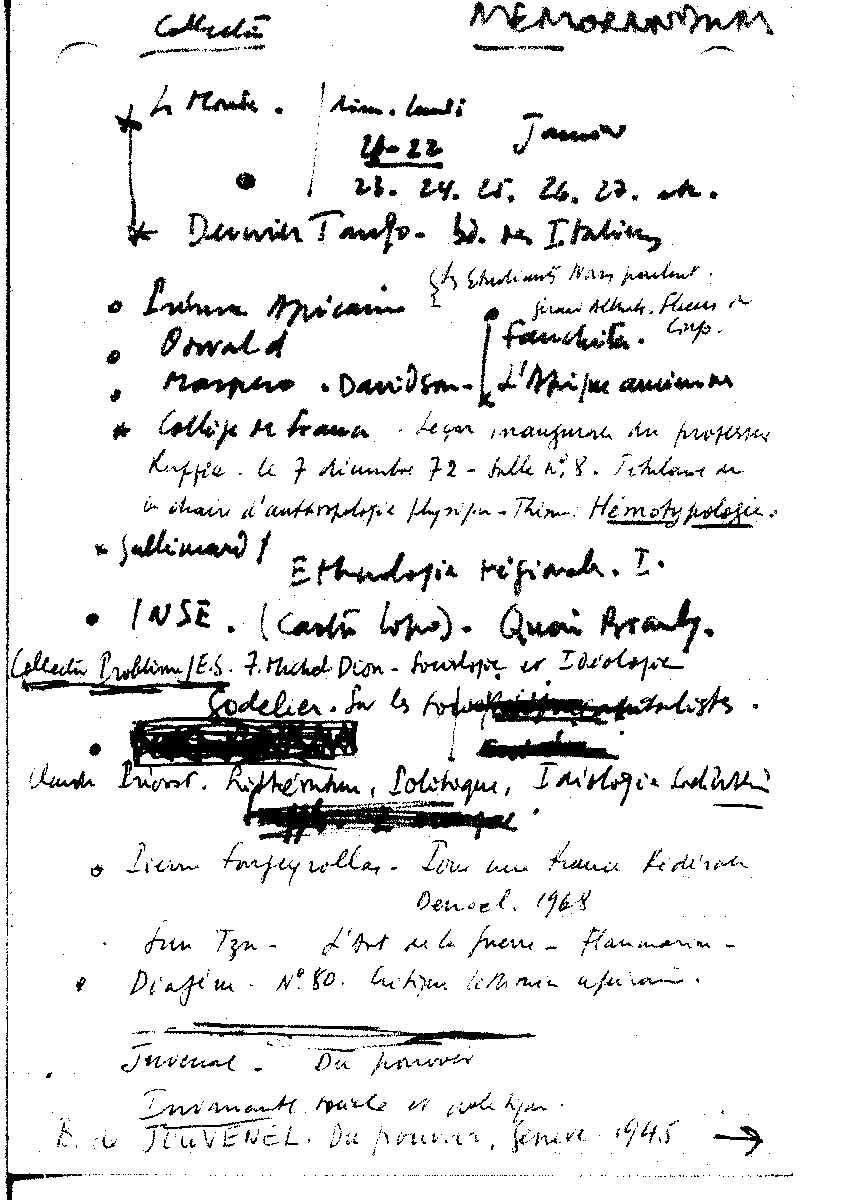 Collectio MEMORANDUM
* Le Monde. Dim. lundi
21-22 Janvier
23. 24. 25. 26. 27. etc.
* Dernier Tango - bd. des Italiens
Présence Africaine { Les Etudiants Noirs parlent.
Oswald Fanchita. Corp.
Maspero. Davidson - L'Afrique ancienne
* Collège de France. Leçon inaugurale du professeur
Ruffié. le 7 décembre 72 - Salle n°. 8. Titulaire de
la chaire d'anthropologie physique - Thème: Hémotypologie.
* Gallimard / Ethnologie régionale. I.
INSE. (Castro Lopo). Quai Branly.
Collection Problèmes/E.S. 7. Michel Dion - Sociologie et Idéologie
Godelier. Sur les
Claude Prévost. Littérature, Politique, Idéologie
Pierre Fougeyrollas - Pour une France Fédérale
Denoel. 1968
Sun Tzu - L'Art de la guerre - Flammarion -
Diogène. N° 80. Critique littéraire africaine.
Juvenal. Du pouvoir
Invariants sociale et politique.
B. de JOUVENEL. Du pouvoir, Genève. 1945 →